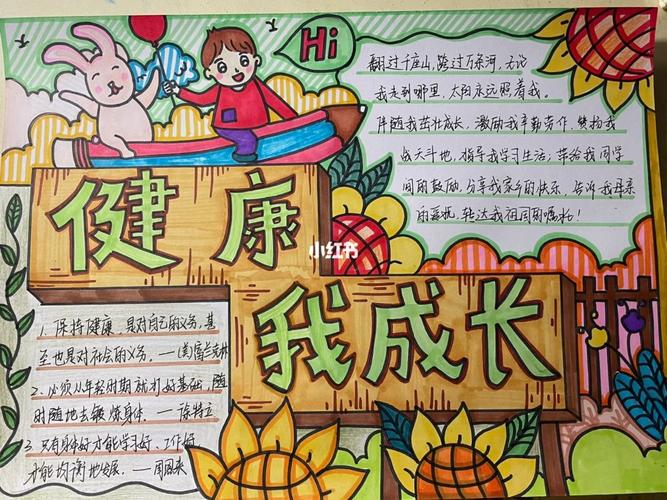 Hi
翻过千座山,跨过万条河,无论
我走到哪里,太阳永远照着我。
伴随我茁壮成长,激励我辛勤劳作,赞扬我
战天斗地,指导我学习生活,带给我同学
间的鼓励,分享我家乡的快乐,告诉我母亲
的爱抚,转达我祖国的嘱托!
健康
小红书
我成长
1、保持健康,是对自己的义务,甚
至也是对社会的义务。——(美)富兰克林
2、必须从年轻时期就打好基础,随
时随地去锻炼身体。——徐特立
3、只有身体好才能学习好、工作好
才能均衡地发展。——周恩来